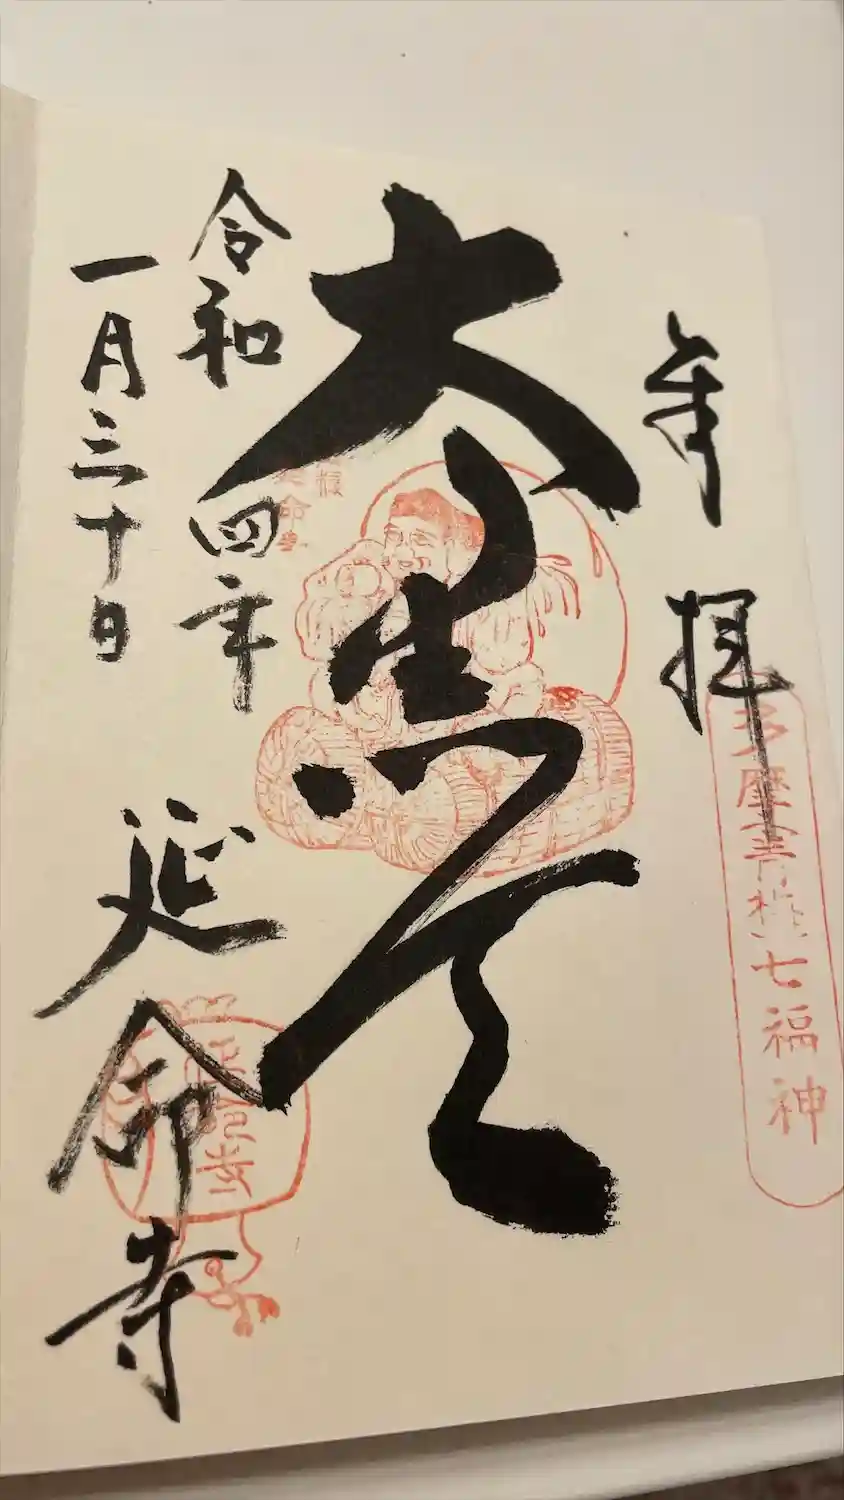 奉拝
多摩青梅七福神
大黒天
令和四年
一月三十日
延命寺